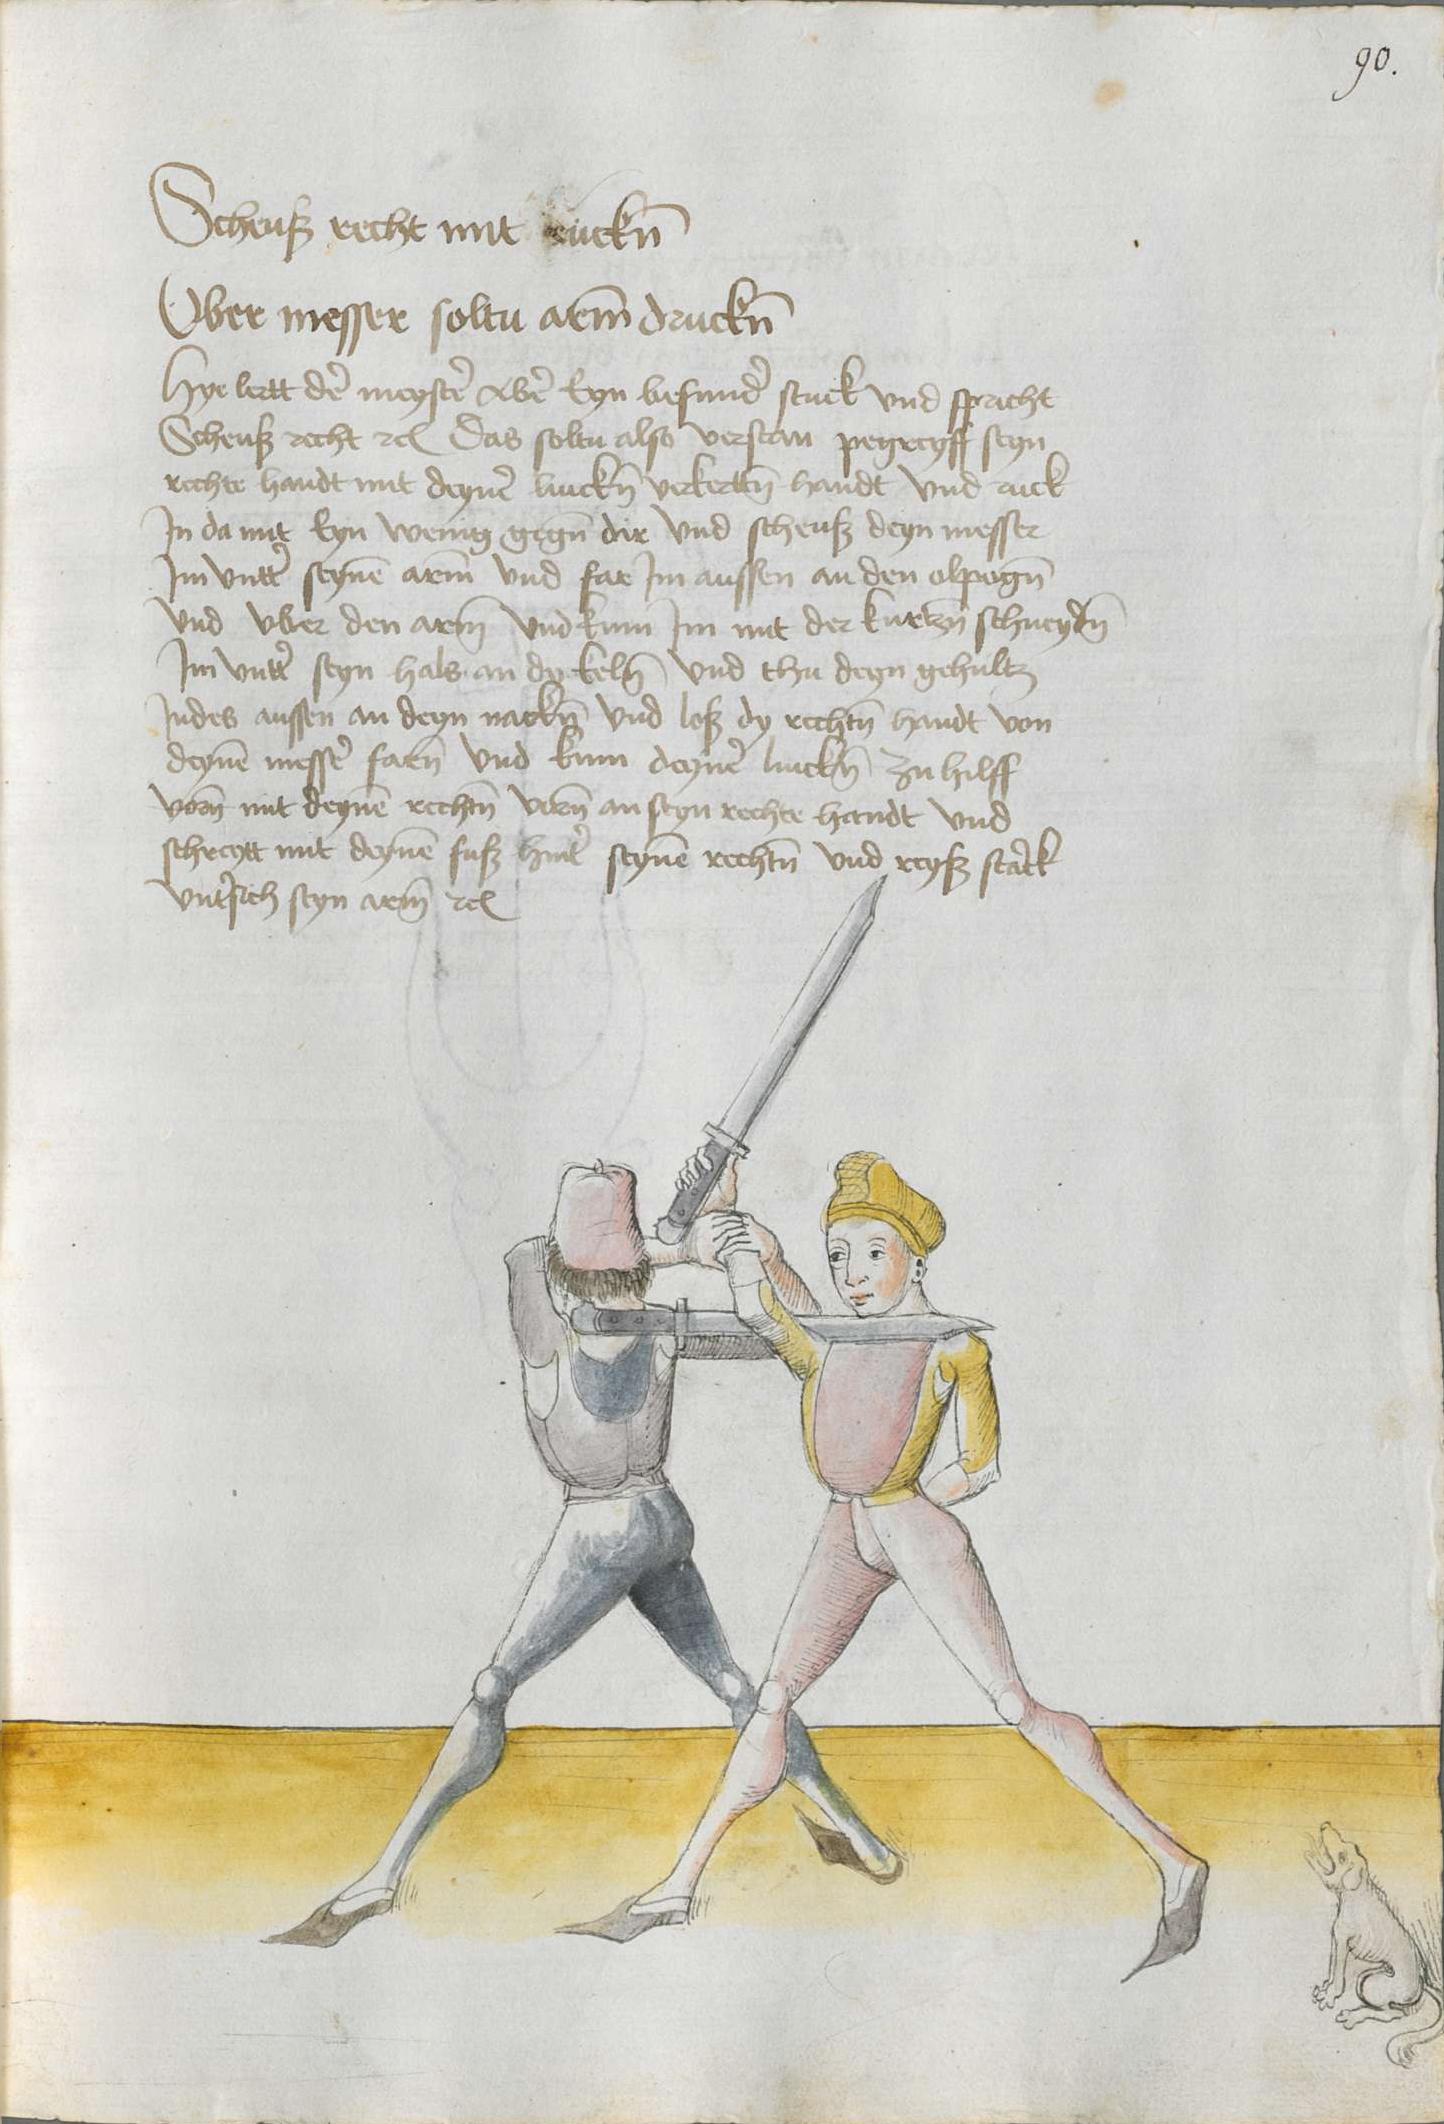 90.
Scheuß recht mit ruckn̄
Vber messer soltu arm̄ druckn̄
Hye lertt der̄ meyster̄ aber̄ Eyn besunder̄ stuck vnd spricht
Scheuß recht ⁊c Das soltu also verstan pegreyff seyn
rechte handt mit deyner̄ linckn̄ verkerttn̄ handt vnd ruck
In da mit Eyn wenig gegn̄ dir vnd scheuß deyn messer
Im vntter̄ seynē arm̄ vnd far Im aussen an den elpogn̄
vnd vber den arm̄ vnd kum Im mit der kurtzn̄ schneydn̄
Im vntter̄ seyn hals an dy keln̄ vnd thu deyn gehultz
Indes aussen an deyn nackn̄ vnd loß dy rechtn̄ handt von
deynē messer̄ farn̄ vnd kum deyner̄ linckn̄ zu hilff
vorn̄ mit deynē rechtn̄ vorn̄ an seyn rechte handt vnd
schreytt mit deynē fuß hintter̄ seynē rechtn̄ vnd reyß starck
vnttersich seyn arm̄ ⁊c